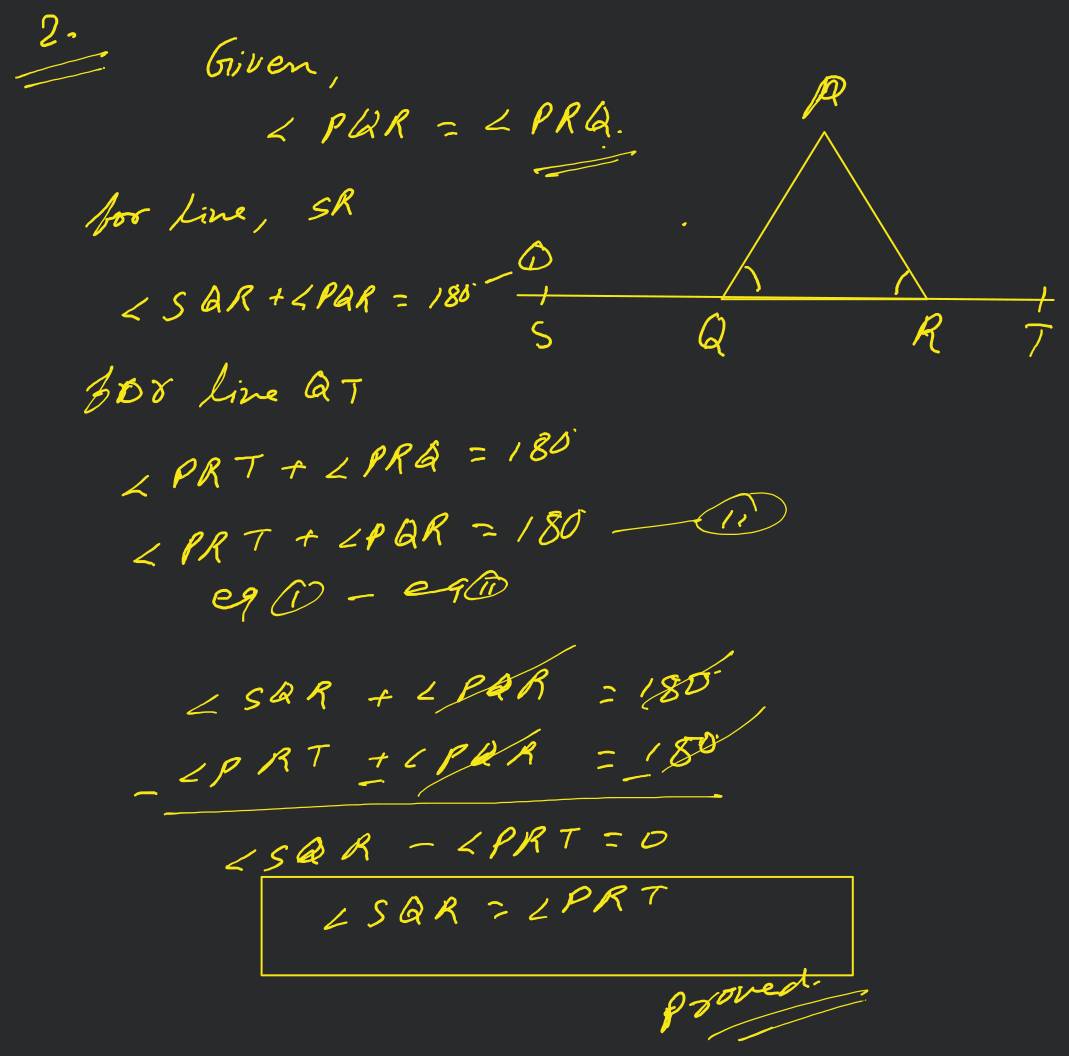 2.
Given,
∠ PQR = ∠ PRQ.
for line, SR
∠ SQR + ∠PQR = 180° — ⓘ
for line QT
∠ PRT + ∠PRQ = 180°
∠ PRT + ∠PQR = 180 — ⓘⓘ
eq ⓘ - eq ⓘⓘ
∠ SQR + ∠ PQR = 180°
- ∠PRT ± ∠PQR = _180°
∠SQR - ∠PRT = 0
∠ SQR = ∠PRT
Proved.
P
S Q R T